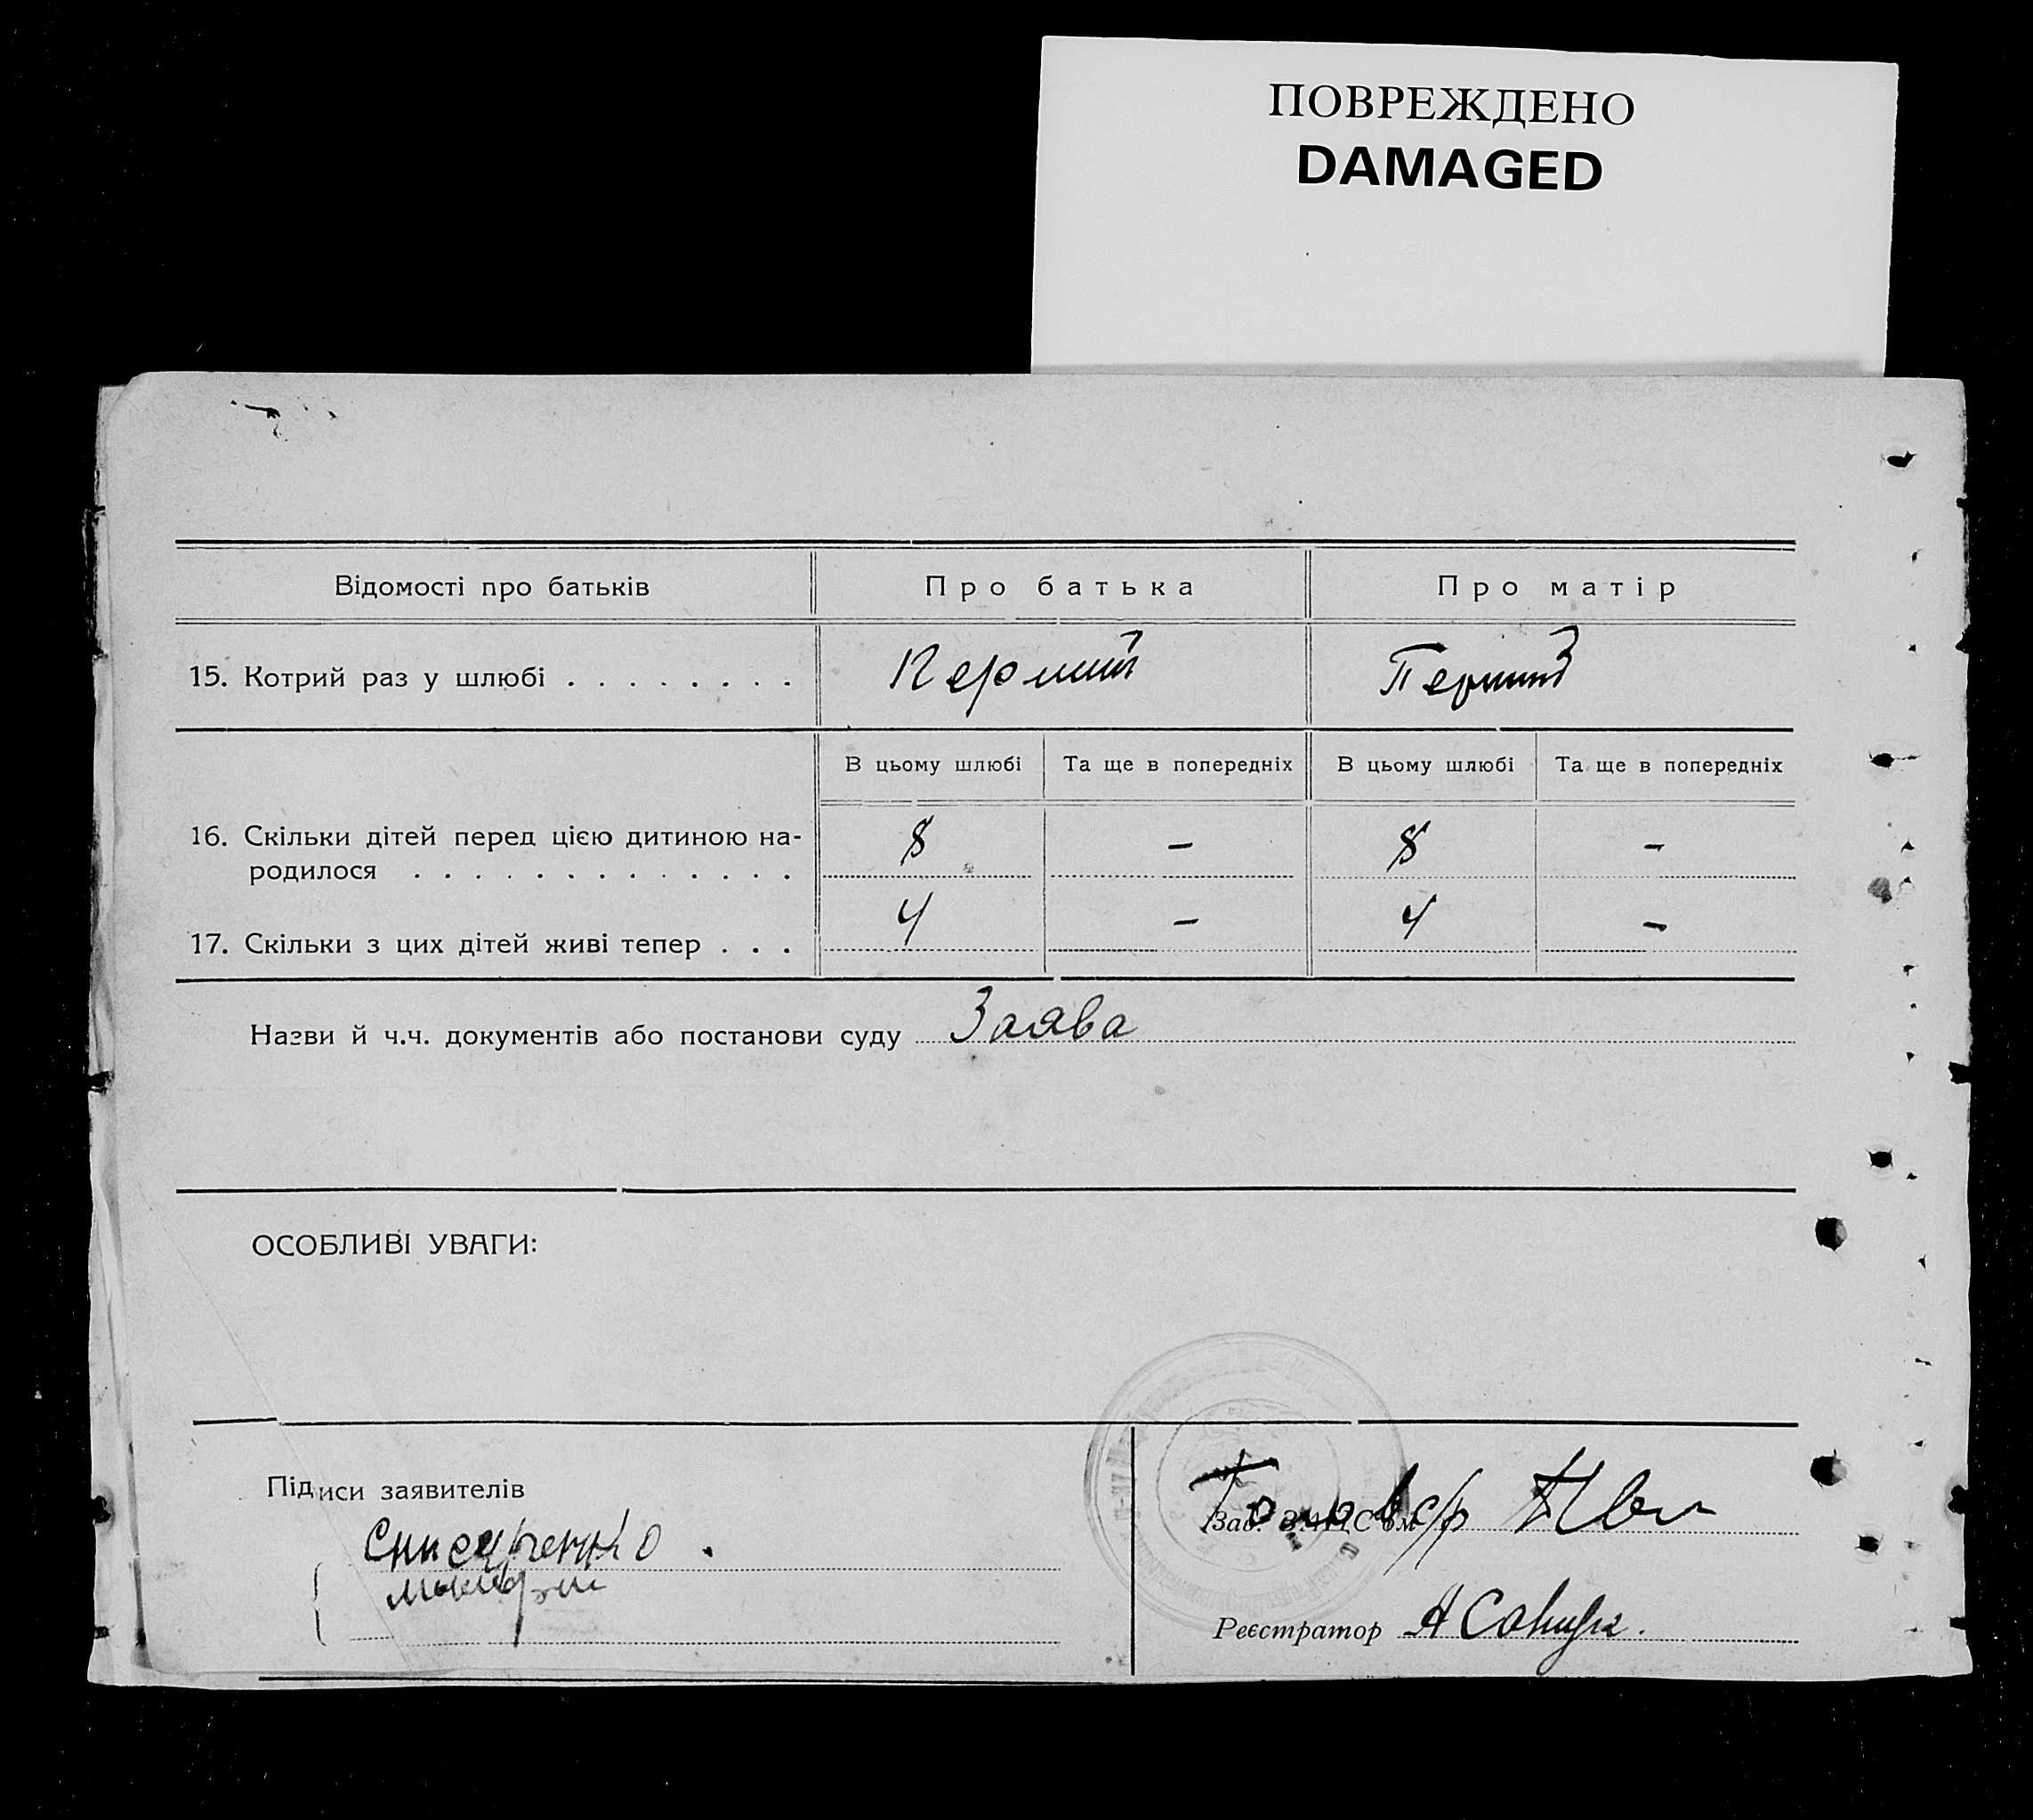 ПОВРЕЖДЕНО
DAMAGED
Відомості про батьків
Про батька
Про матір
15. Котрий раз у шлюбі . . . . . . . .
Перший
Перший
В цьому шлюбі
Та ще в попередніх
В цьому шлюбі
Та ще в попередніх
16. Скільки дітей перед цією дитиною на-
родилося . . . . . . . . . . . . .
8
–
8
–
17. Скільки з цих дітей живі тепер . . .
4
–
4
–
Назви й ч.ч. документів або постанови суду Заява
ОСОБЛИВІ УВАГИ:
Підписи заявителів
Зав. ЗАЦС'ом
Реєстратор